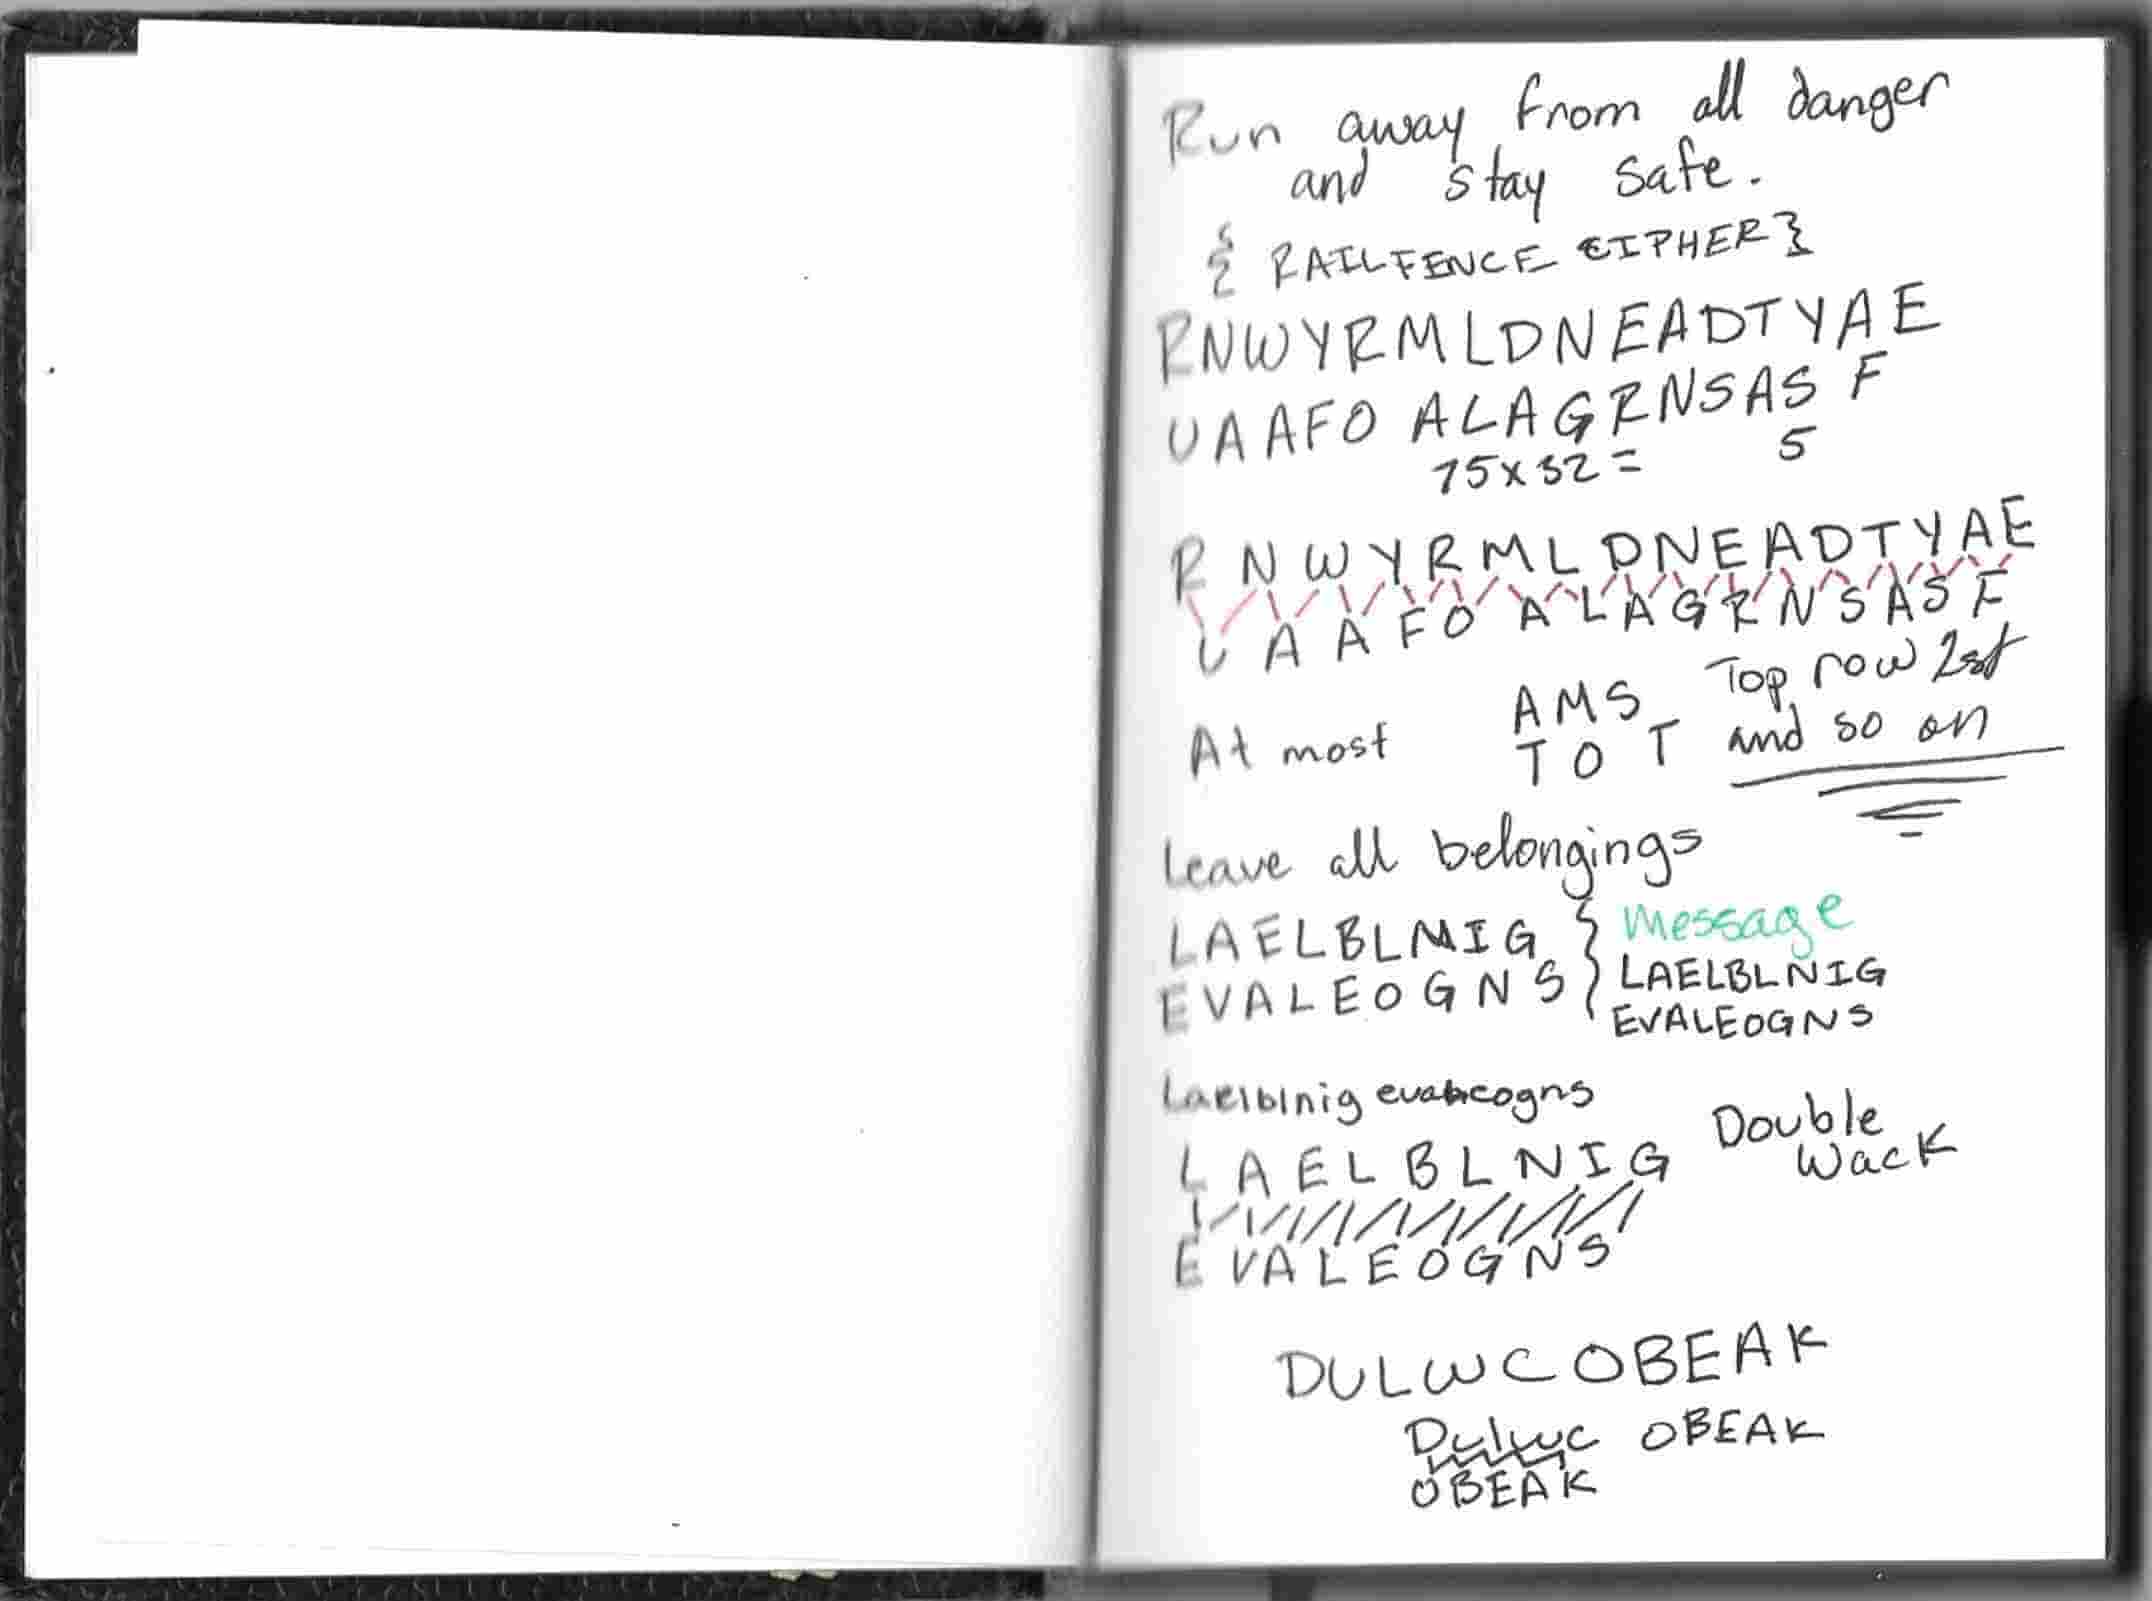 Run away from all danger
and stay safe.
{ RAILFENCE CIPHER }
RNWYRMLDNEADTYAE
UAAFO ALAGRNSAS F
75x32= 5
R N W Y R M L D N E A D T Y A E
U A A F O A L A G R N S A S F
At most
A M S
T O T
Top row 1st
and so on
Leave all belongings
LAELBLNIG
EVALEOGNS
Message
LAELBLNIG
EVALEOGNS
Laelblnig evaleogns
Double
Wack
L A E L B L N I G
E V A L E O G N S
DULWCOBEAK
Dulwc OBEAK
OBEAK